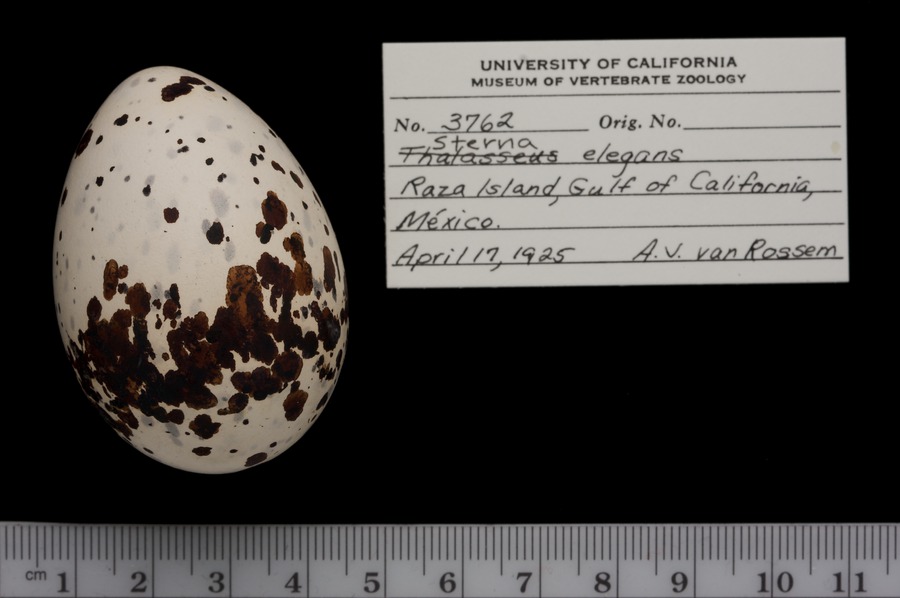 UNIVERSITY OF CALIFORNIA
MUSEUM OF VERTEBRATE ZOOLOGY
No. 3762 Orig. No.
Sterna
Thalasseus elegans
Raza Island, Gulf of California,
México.
April 17, 1925 A.V. van Rossem
cm 1 2 3 4 5 6 7 8 9 10 11